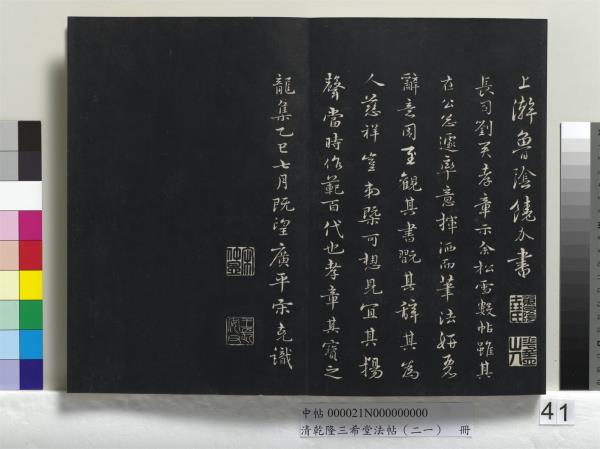 上澣魯陰饒介書
長司劉君孝章示余松雪數帖雖其
在公怱遽率意揮洒而筆法妍
辭意周至觀其書翫其辭其為
人慈祥豈弟槩可想見宜其揚
聲當時作範百代也孝章其寶之
龍集乙巳七月既望廣平宋克識
中帖000021N000000000
清乾隆三希堂法帖（二一） 冊
41